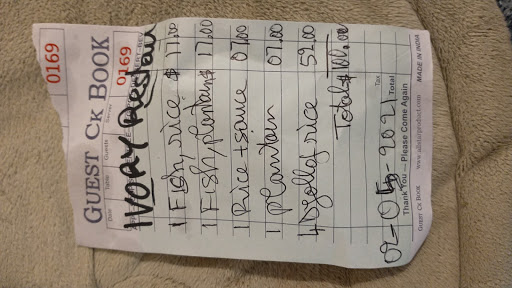 0169
GUEST CK BOOK
Date Table Guests Server
0169
IVORY Restau
1 Fish, rice $ 17.00
1 Fish, plantain $ 17.00
1 Rice + sauce 07.00
1 plantain 07.00
4 Djollof rice 52.00
Total $ 100.00
Tax
02-05-2021
Total
Thank You — Please Come Again
GUEST CK BOOK MADE IN INDIA